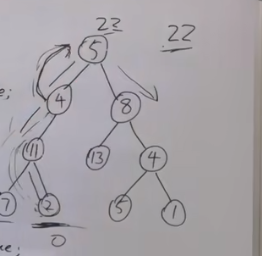 22
22
5
4
8
11
13
4
7
2
5
1
0